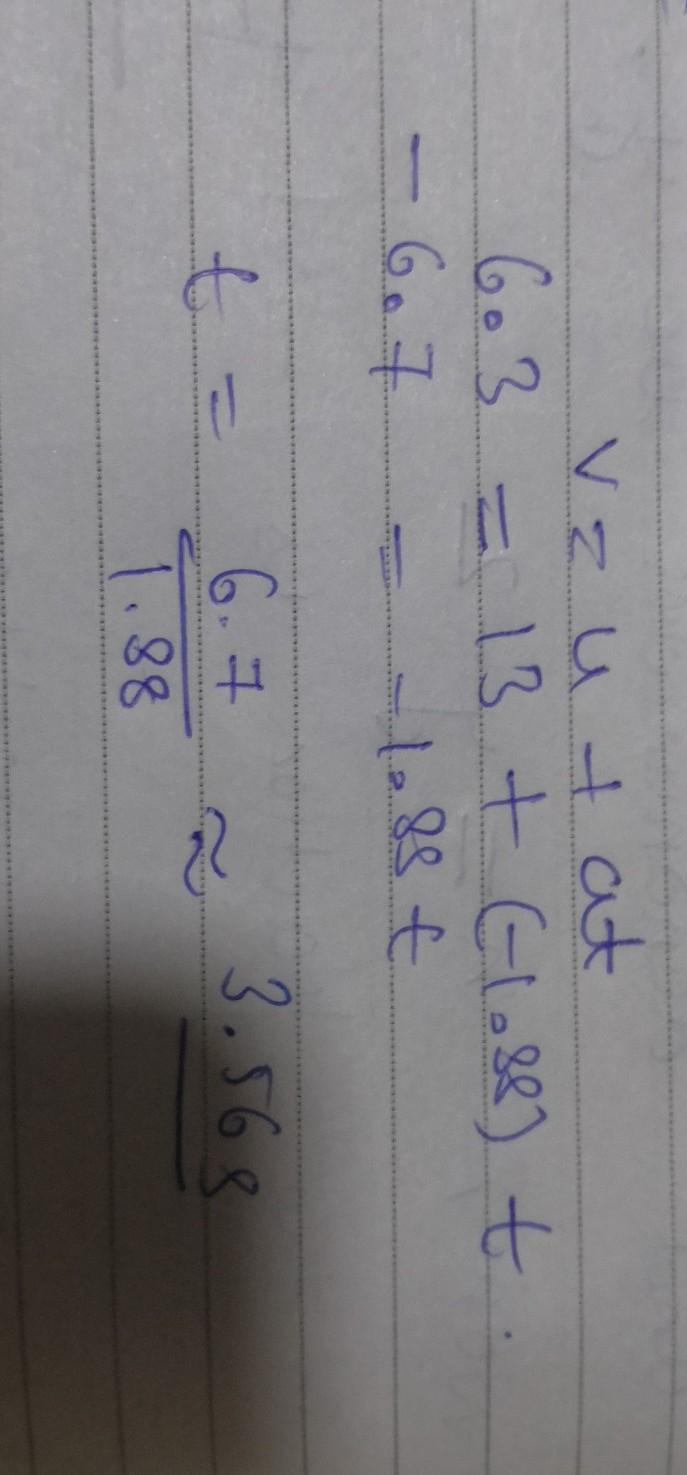 v = u + at
6.3 = 13 + (-1.88) t.
- 6.7 = -1.88 t
t = 6.7 / 1.88 ≈ 3.568